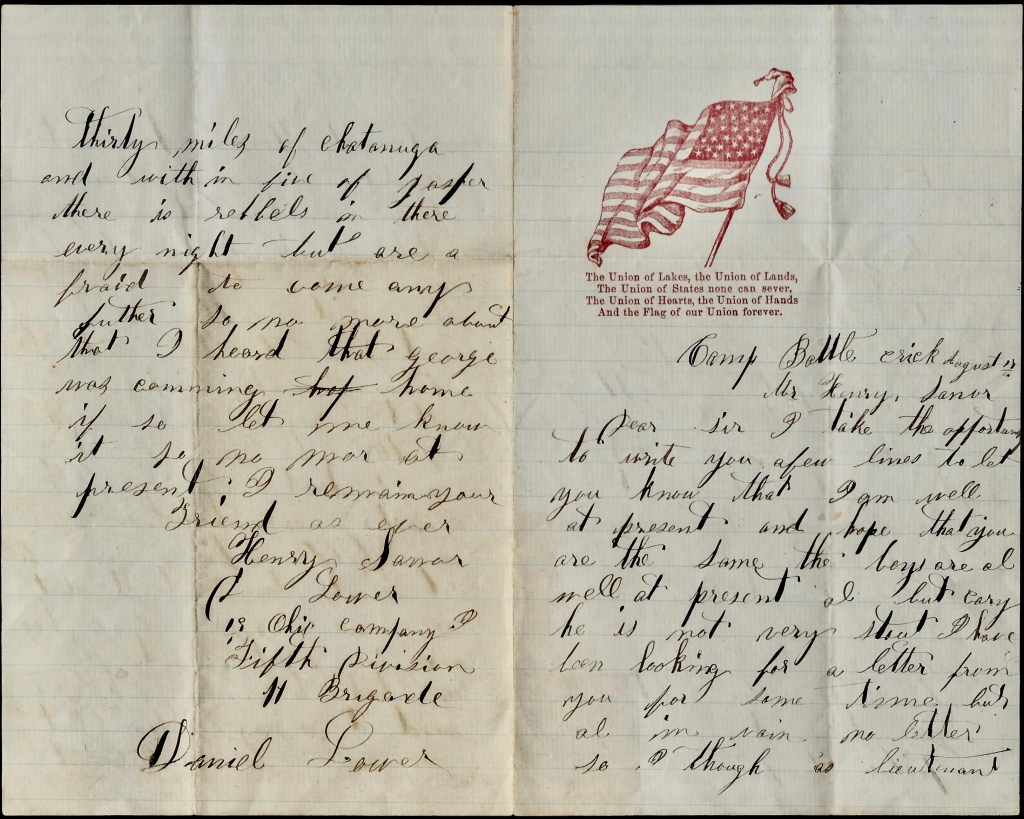 The Union of Lakes, the Union of Lands,
The Union of States none can sever,
The Union of Hearts, the Union of Hands
And the Flag of our Union forever.
Camp Battle crick August 17
Mr Henry, Sanor
Dear sir I take the opportuny
to write you afew lines to let
you know that I am well
at present and hope that you
are the same the boys are al
well at present al but cary
he is not very stout I have
ben looking for a letter from
you for some time but
al in vain no letter
so I though as lieutenant
thirty miles of chatanuga
and with in five of jasper
there is rebbels in there
every night but are a
fraid to come any
futher so no more about
that I heard that george
was comming home
if so let me know
it so no mor at
present; I remain your
Friend as ever
Henry Sanor
Lower
19 Ohio Company I
Fifth Division
11 Brigade
Daniel Lower